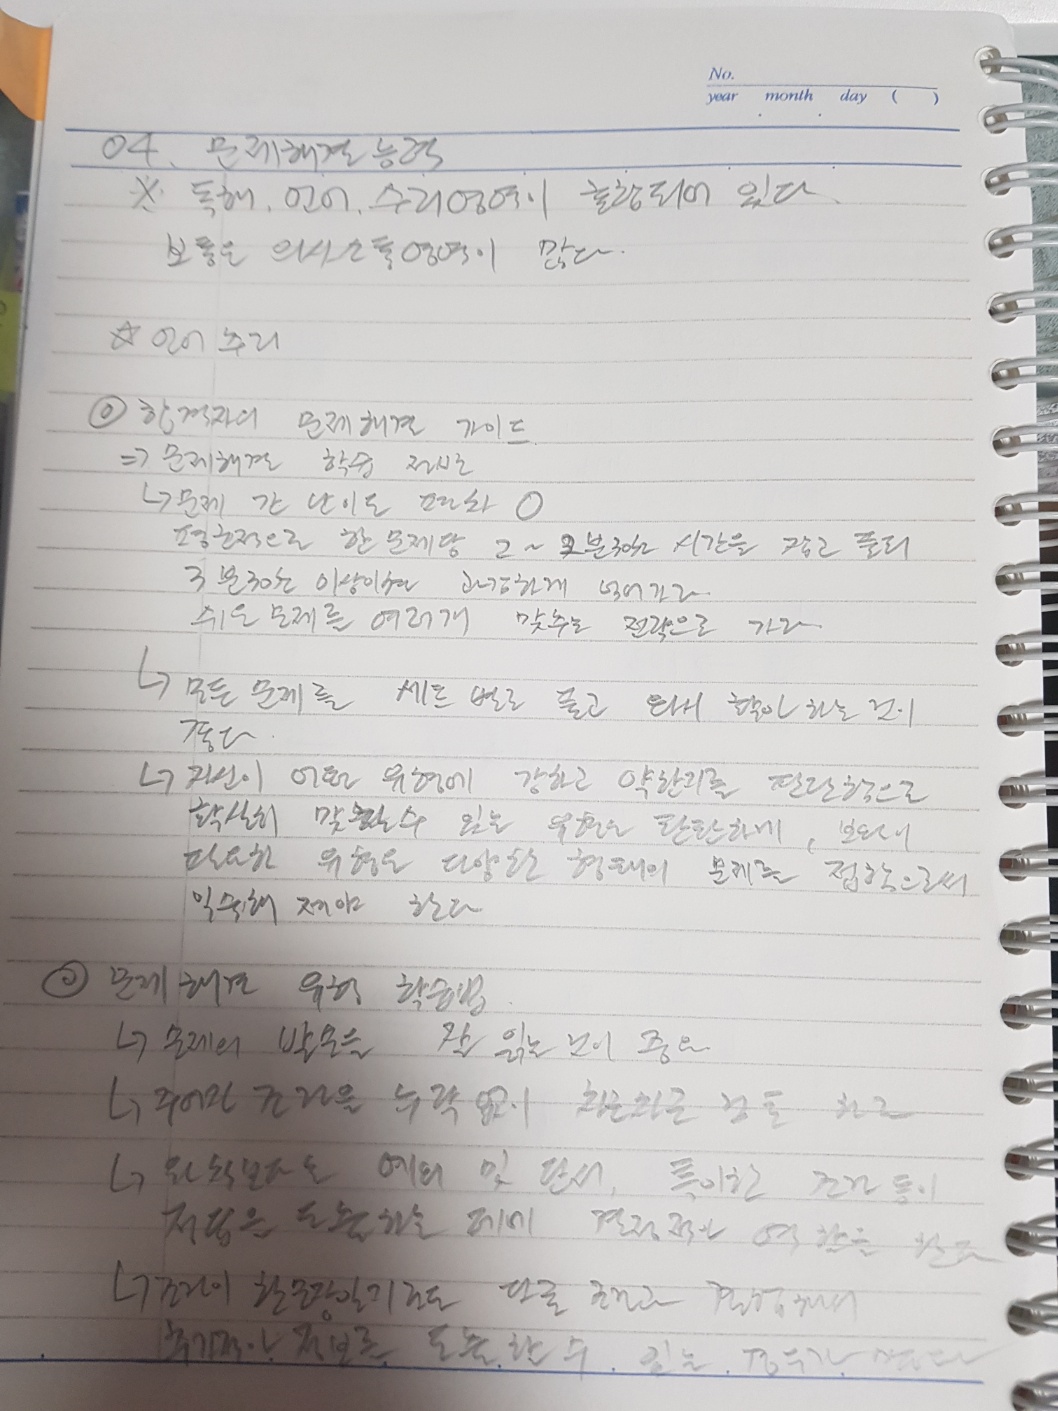 No.
year month day ( )
04. 문제해결능력
※ 독해, 언어, 수리영역이 출합되어 있다.
보통은 의사소통영역이 많다.
☆ 언어 추리
① 합격자의 문제해결 가이드
⇒ 문제해결 학습 전반
↳ 문제 간 난이도 편차 ○
평균적으로 한 문제당 2~2분30초 시간을 잡고 풀되
3분30초 이상이면 과감하게 넘어가라.
쉬운 문제를 여러개 맞추는 전략으로 가라.
↳ 모든 문제를 세트 별로 풀고 와서 학아 하는 것이
좋다.
↳ 자신이 어떤 유형에 강하고 약한지를 판단함으로
확실히 맞출수 있는 유형은 탄탄하게, 보완이
필요한 유형은 다양한 형태의 문제를 접함으로써
익숙해 져야 한다
② 문제해결 유형 학습법.
↳ 문제의 발문을 잘 읽는 것이 중요
↳ 주어진 조건을 누락 없이 차근차근 검토 하고
↳ 원칙보다도 예외 및 단서, 특이한 조건 등이
정답을 도출하는 데에 결정적인 역할을 한다
↳ 조건이 한문장일지라도 다른 조건과 결합해서
추가적인 정보를 도출할 수 있는 경우가 많다